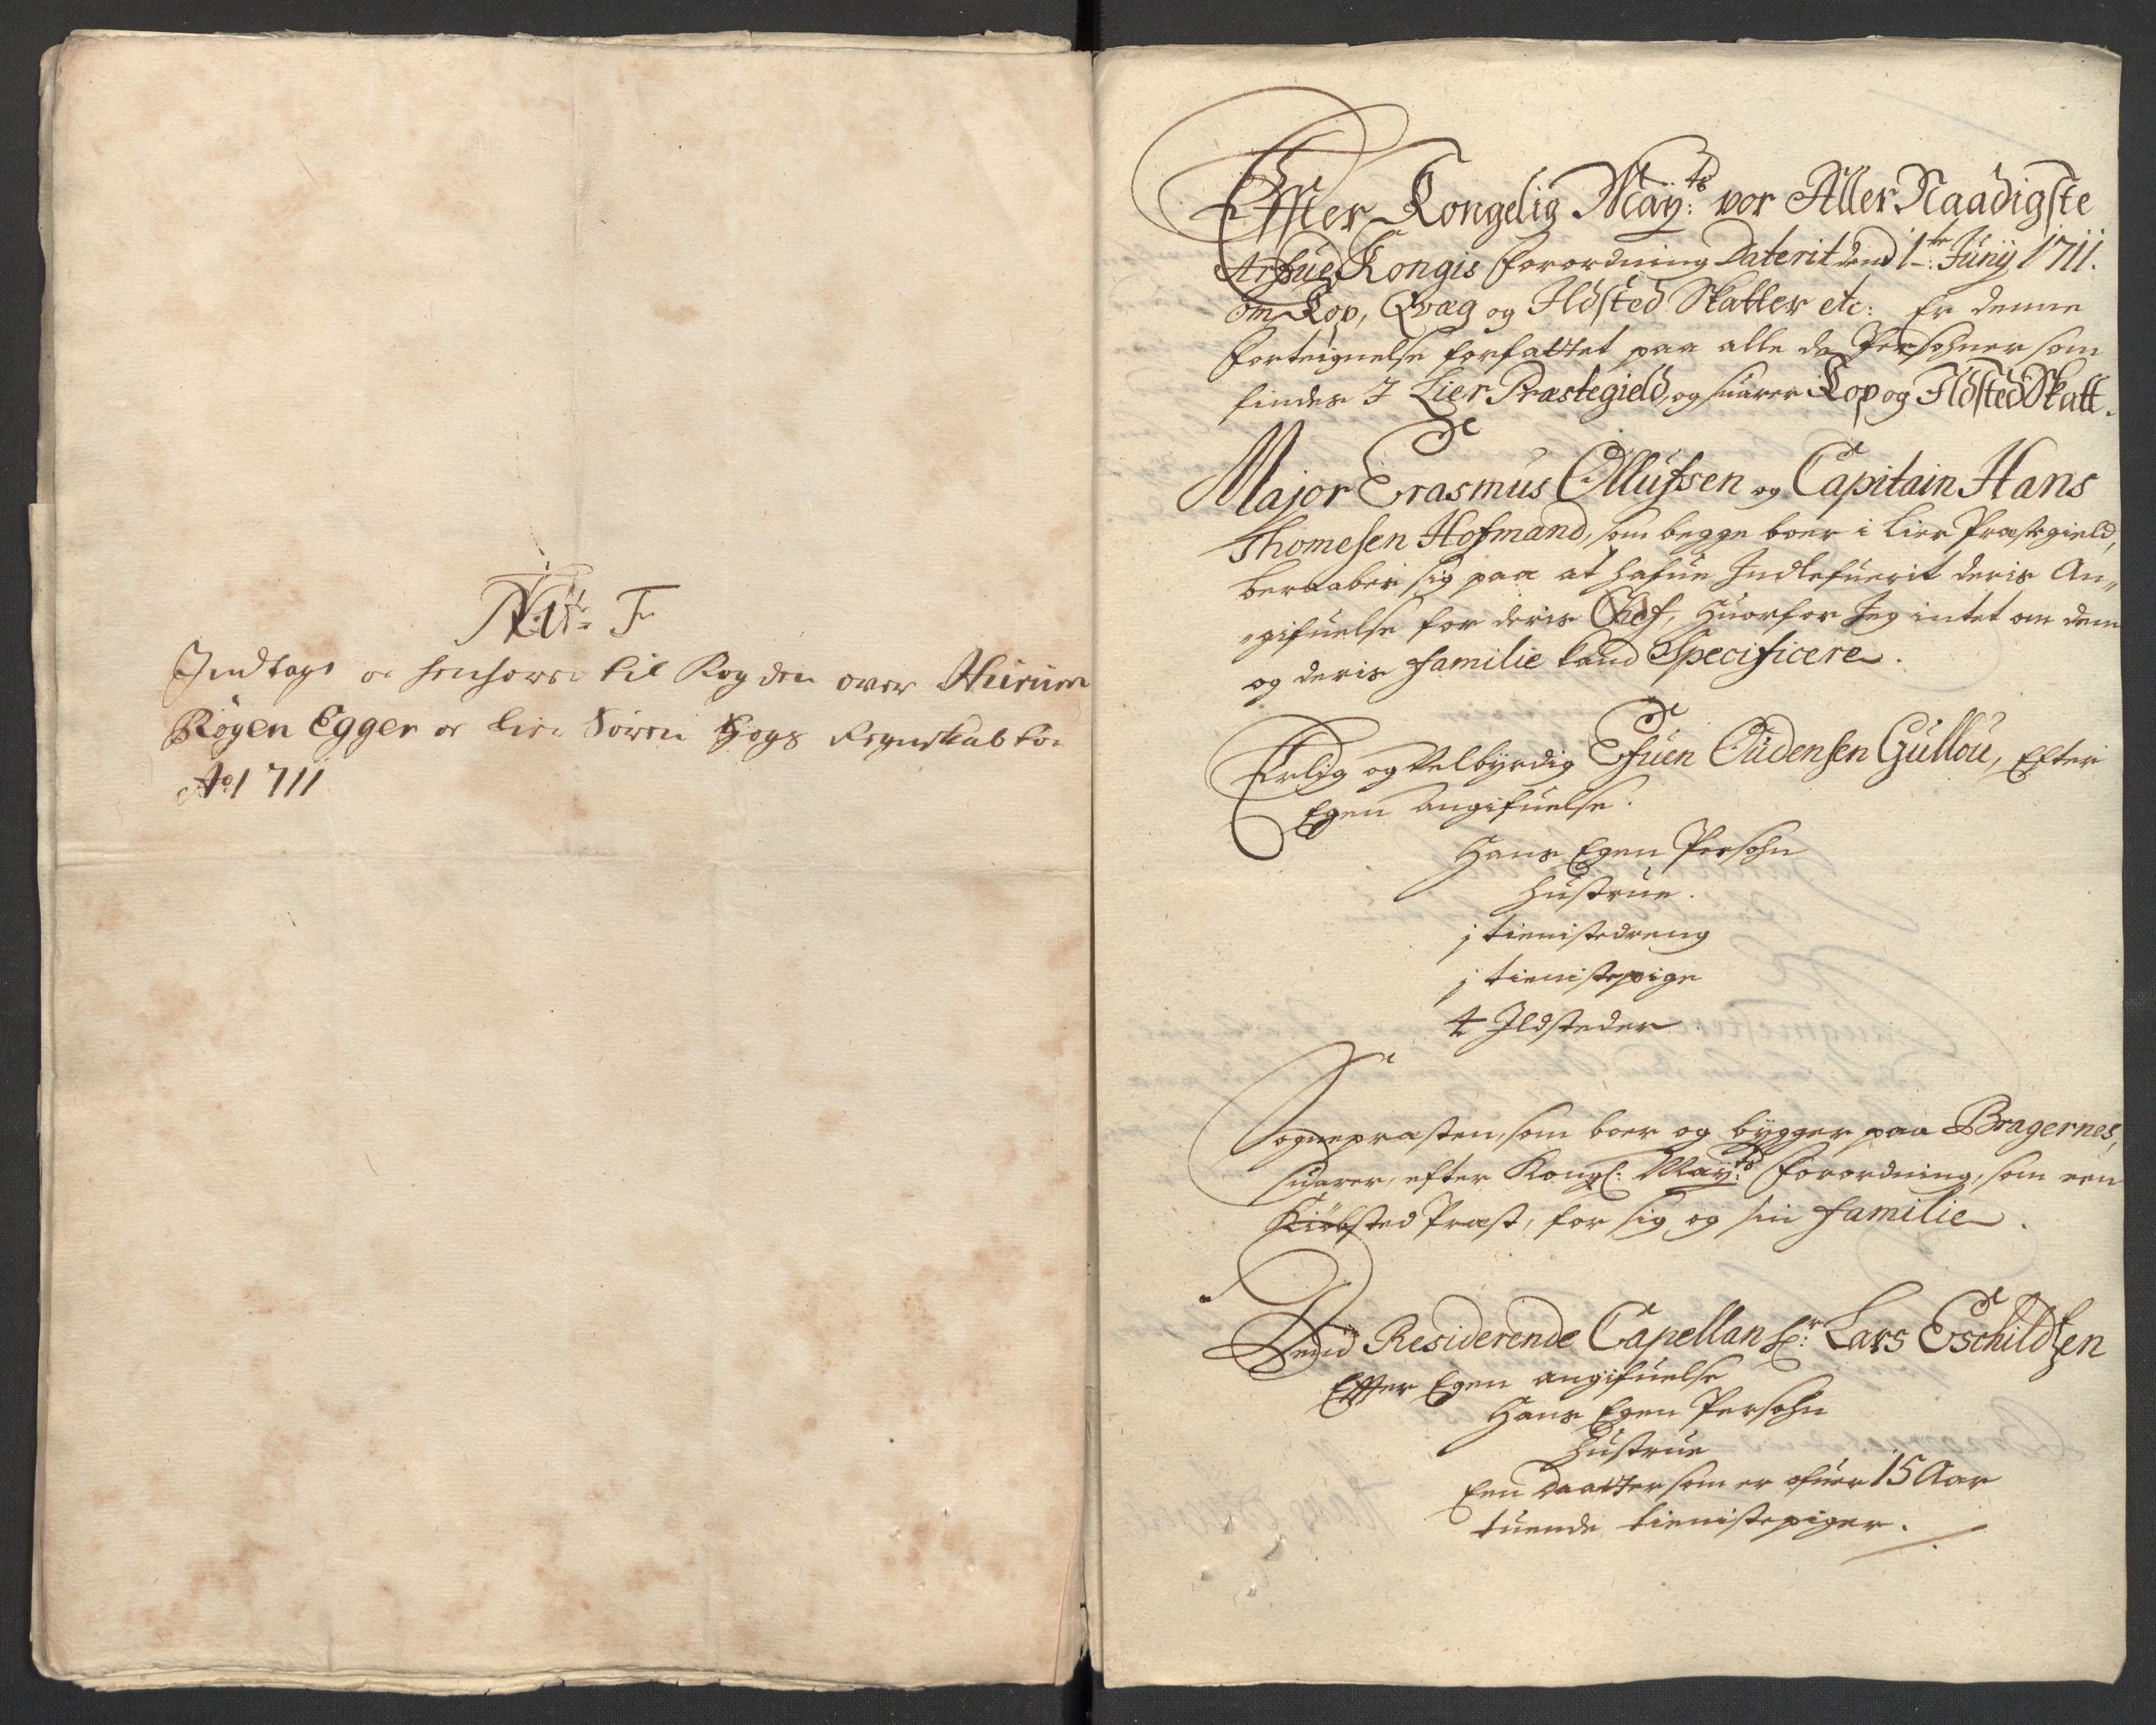 Indtagt oc henhører til Fogden over Hurum
Røgen Egger oc Lier Søren Hogs Regnskab for
Ao 1711
Effter Kongelig Mayts: vor Aller Naadigste
Arfue Kongis forordning Daterit dend 1te: Junij 1711.
om Kop, Qvæg og Ildsted Skatter etc: Er denne
forteignelse forfattet paa alle de Persohner som
findes I Lier Præstegield, og suarer Kop og Ildsted Skatt.
Major Erasmus Ollufsen og Capitain Hans
Thomesen Hofmand, som begge boer i Lier Præstegield,
beraaber sig paa at hafue Indlefuerit deris An„
„gifuelse for deris Chef, Huorfor Jeg intet om dem
og deris familie kand Specificere.
Erlig og Velbyrdig Efuen Oudensen Gullou, Efter
Egen angifuelse.
Hans Egen Persohn
Hustrue.
j tienistedreng
j tienistepige
4 Ildsteder
Sognepræsten, som boer og bygger paa Bragernes,
suarer, efter Kongl: Mayts: forordning, som een
Kiøbsted Præst, for sig og sin familie.
Dend Residerende Capellan Hr: Lars Eschildsen
Effter Egen angifuelse
Hans Egen Persohn
Hustrue
Een Daatter som er ofuer 15 Aar
tuende tienistepiger.